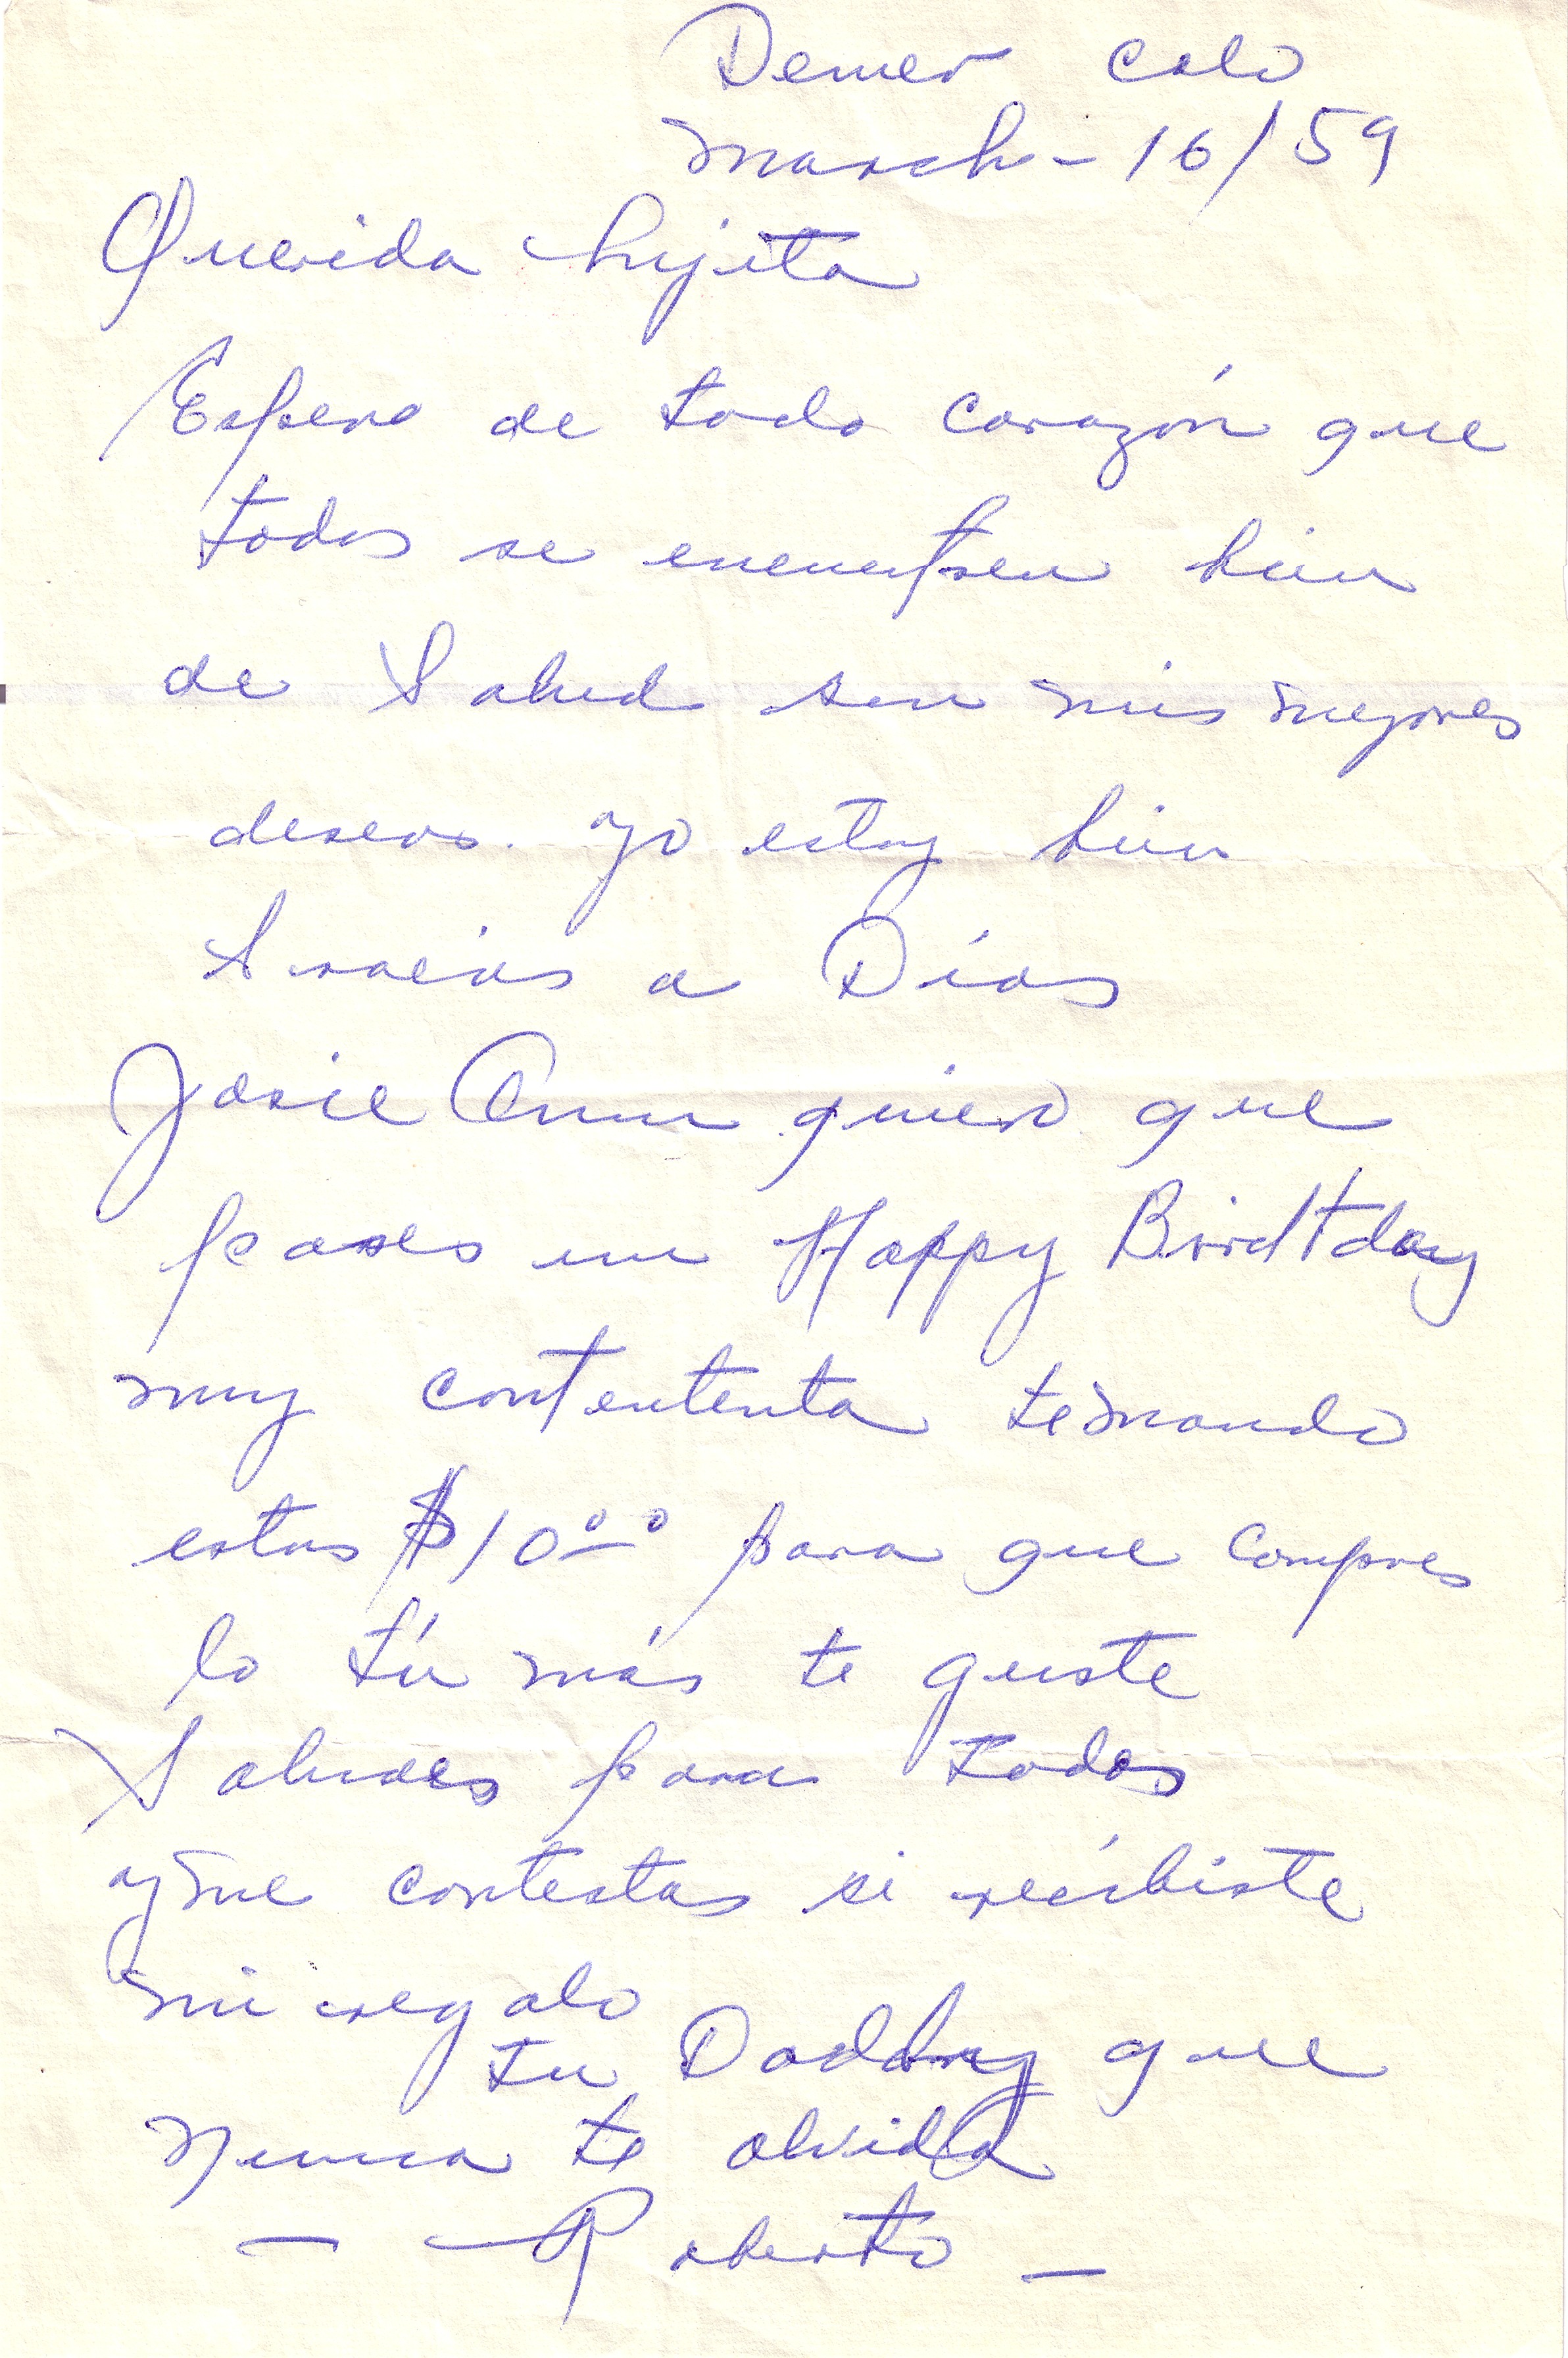 Denver Colo
March - 16/59
Querida hijita
Espero de todo corazón que
todos se encuentren bien
de Salud son mis mejores
deseos. yo estoy bien
Gracias a Dios
Josie Ann quiero que
pases un Happy Birdtday
muy contententa te mando
estos $10.00 para que compres
lo tú más te guste
Saludes para todos
y me contestas si recibiste
mi regalo
tu Daddy que
nunca te olvida
— Roberto —